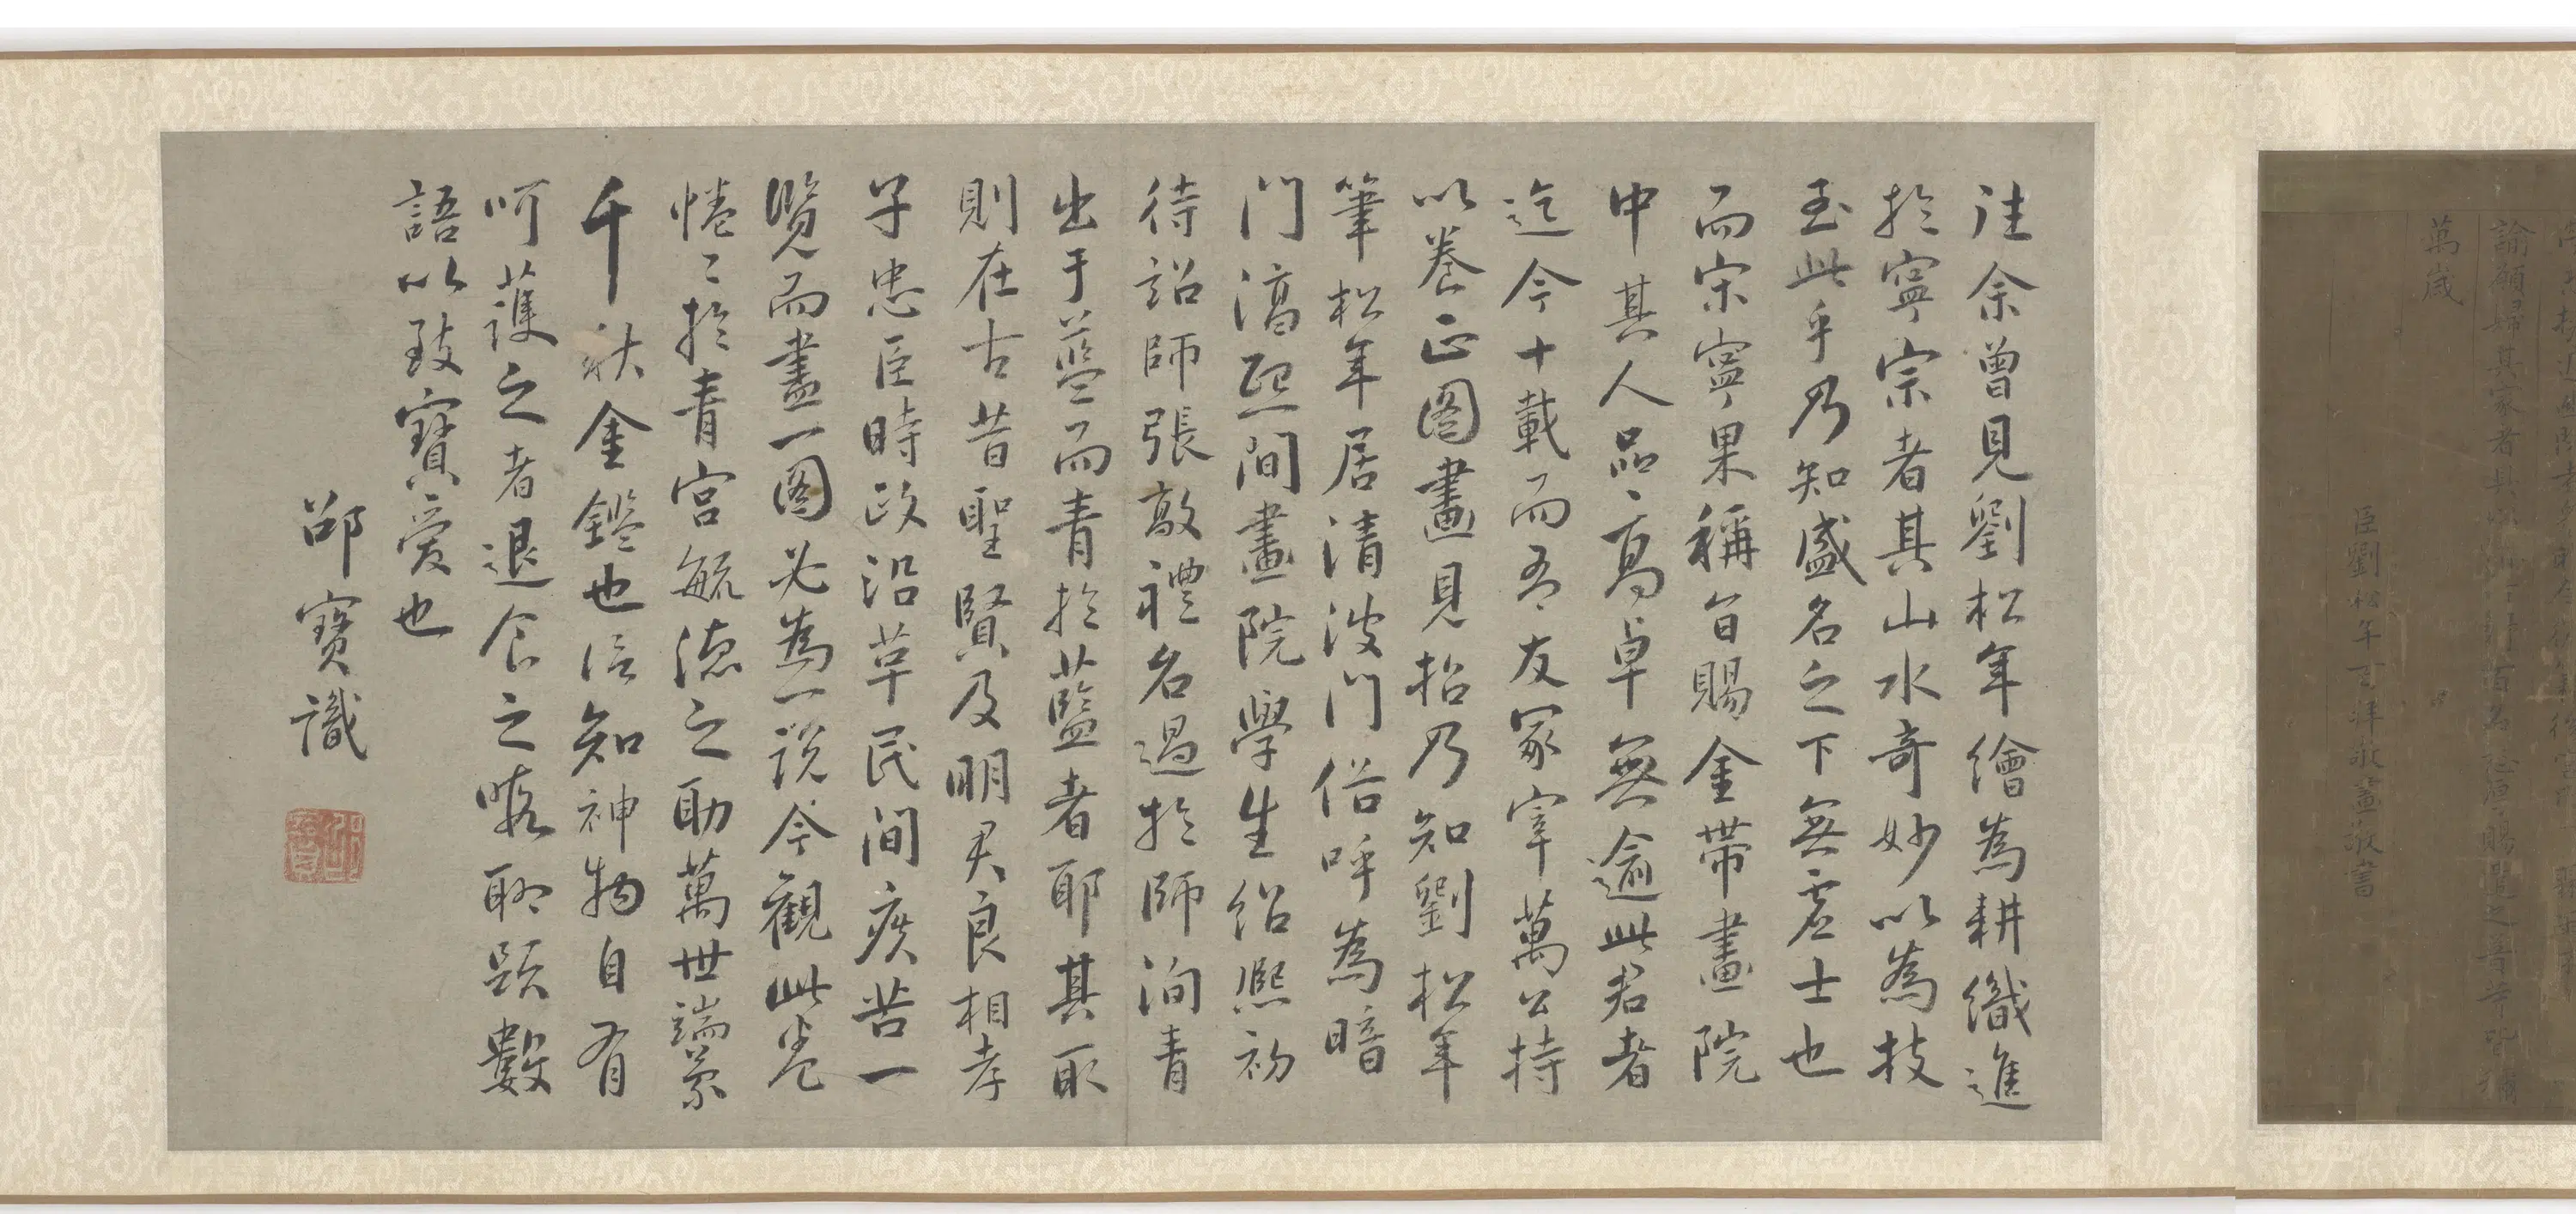 諭願婦其家者
萬歲
臣劉松年百拜敬畫敬書
往余曾見劉松年繪為耕織進
於寧宗者其山水奇妙以為技
至此乎乃知盛名之下無虛士也
而宋寧果稱旨賜金帶畫院
中其人品高卓無逾此君者
迄今十載而吾友冢宰萬公持
以卷正图畫見招乃知劉松年
筆松年居清波門俗呼為暗
门淳熙间畫院學生紹熙初
待詔師張敦禮名過於師洵青
出于藍而青於藍者耶其取
則在古昔聖賢及明君良相孝
子忠臣時政沿革民间疾苦一
覽而畫一图必為一說今觀此卷
惓〻於青宮毓德之助萬世端蒙
千秋金鑑也信知神物自有
呵護之者退食之暇聊題數
語以致寶愛也
邵寶識